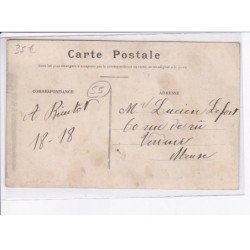 35€
Carte Postale
CORRESPONDANCE
ADRESSE
55
A Bientot
18-18
Mr Lucien Lefort
60 rue de
Verdun
Meuse